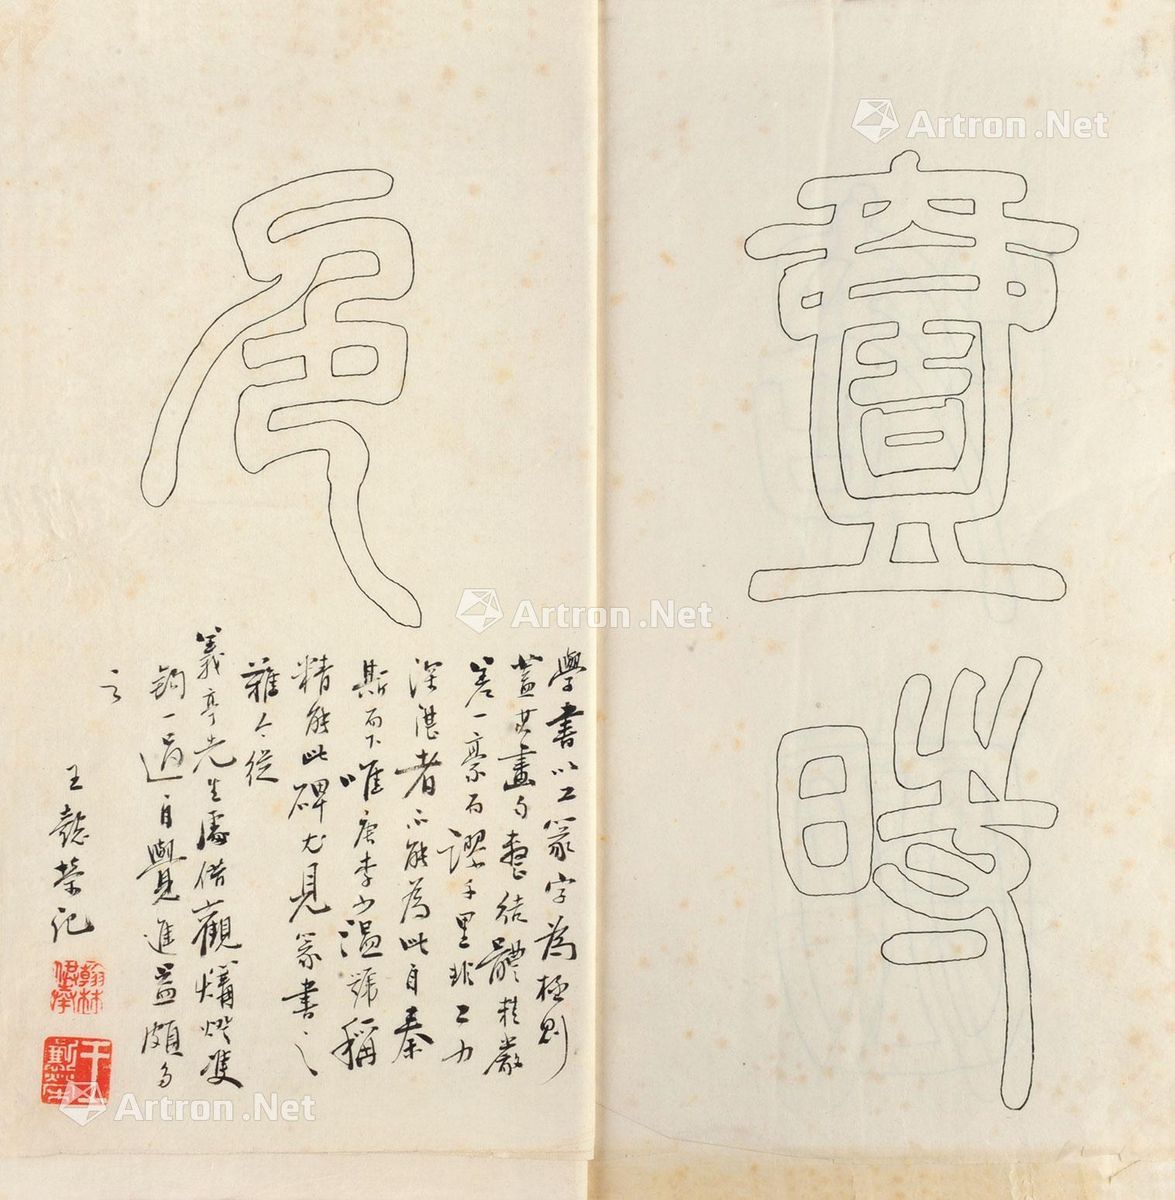 時
學書以工篆字為極則
蓋其畫勻整結體嚴
差一豪而謬千里非工力
深湛者不能為此自秦
斯而下唯唐李少溫號稱
精能此碑尤見篆書之
難今從
義亭先生處借觀煹燈雙
鉤一過自覺進益頗多
云
王懿榮記
翰林供奉
王懿榮
Artron.Net
Artron.Net
Artron.Net